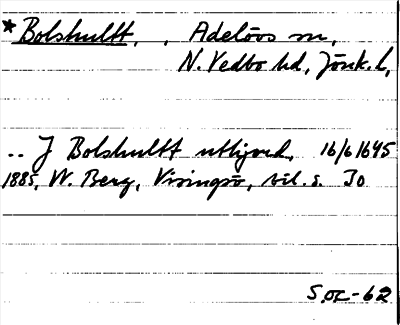 *Bolshultt, , Adelövs sn,
N. Vedbo hd, Jönk. l,
.. J Bolshultt uthjord, 16/6 1645
1885, W. Berg, Visingsö, bil. s. 30
SOC-62